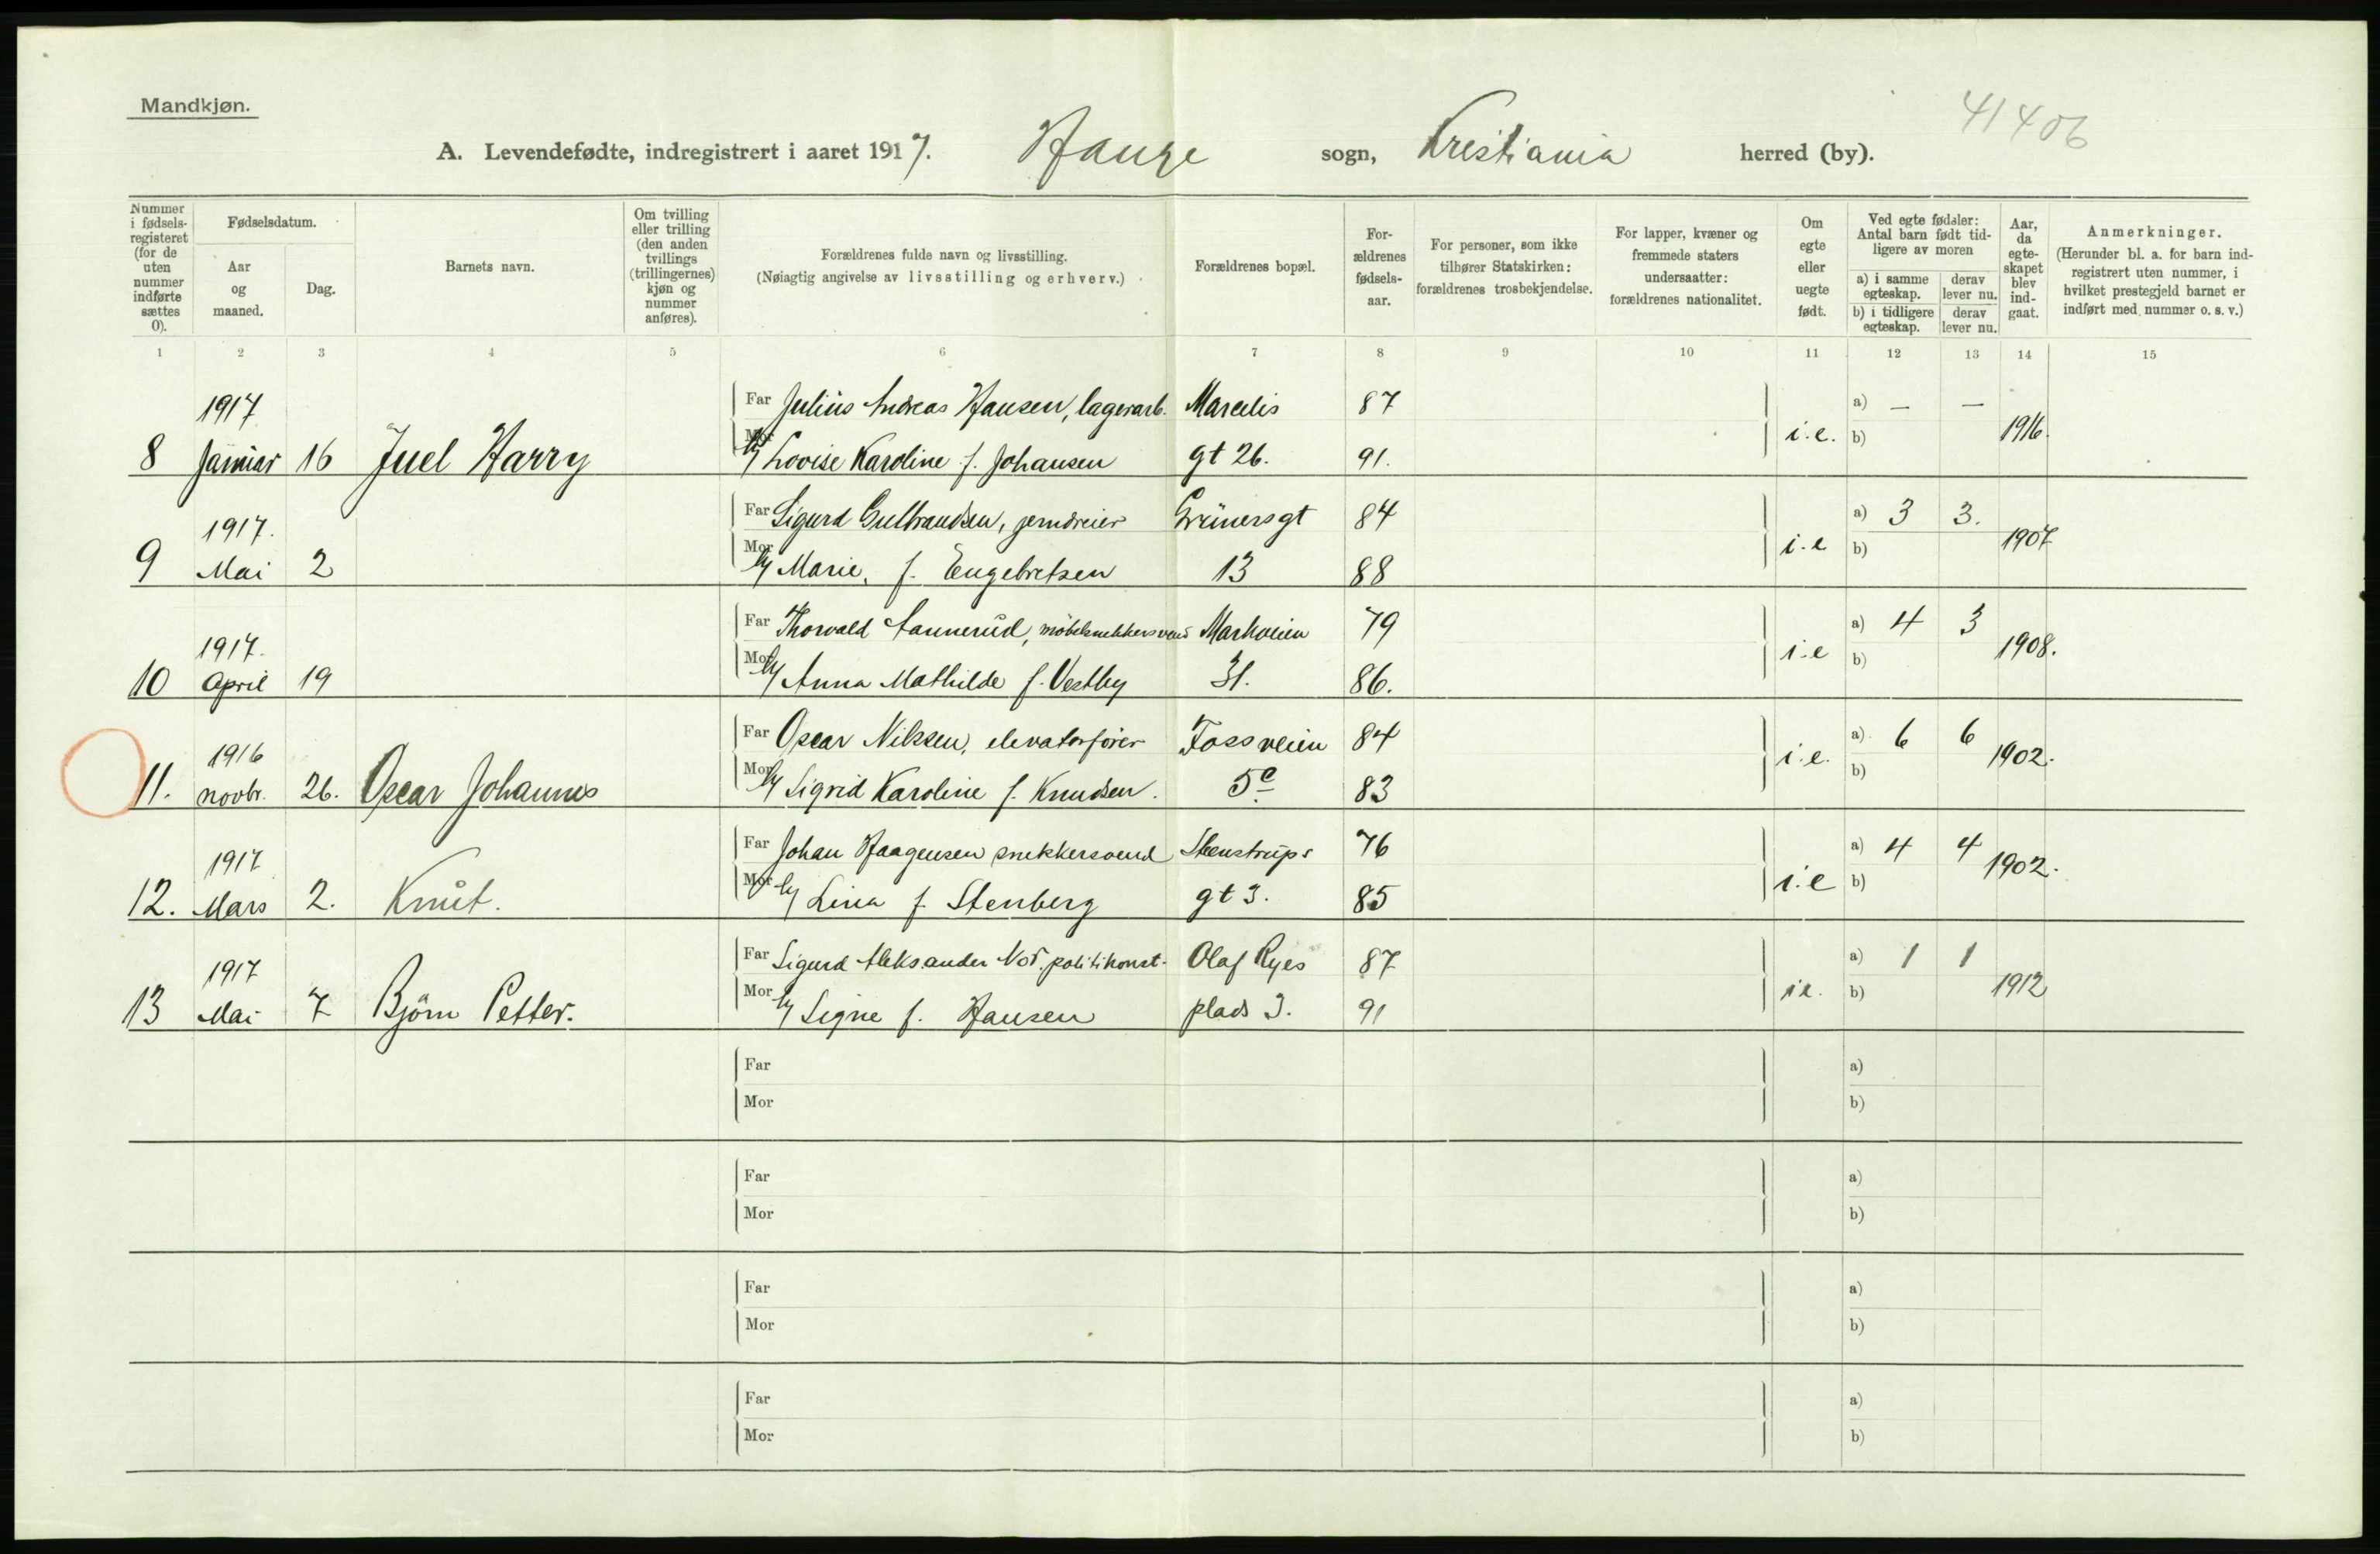 Mandkjøn.
41406
A. Levendefødte, indregistrert i aaret 1917. Hauge sogn, Kristiania herred (by).
Nummer i fødsels-registeret (for de uten nummer indførte sættes 0).
Fødselsdatum.
Aar og maaned.
Dag.
Barnets navn.
Om tvilling eller trilling (den anden tvillings (trillingernes) kjøn og nummer anføres).
Forældrenes fulde navn og livsstilling.
(Nøiagtig angivelse av livsstilling og erhverv.)
Forældrenes bopæl.
For-ældrenes fødsels-aar.
For personer, som ikke tilhører Statskirken: forældrenes trosbekjendelse.
For lapper, kvæner og fremmede staters undersaatter: forældrenes nationalitet.
Om egte eller uegte født.
Ved egte fødsler: Antal barn født tid-ligere av moren
a) i samme egteskap.
derav lever nu.
b) i tidligere egteskap.
derav lever nu.
Aar, da egte-skapet blev ind-gaat.
Anmerkninger.
(Herunder bl. a. for barn ind-registrert uten nummer, i hvilket prestegjeld barnet er indført med nummer o. s. v.)
1 2 3 4 5 6 7 8 9 10 11 12 13 14 15
1917 Far Julius Andreas Hansen, lagerarb. Marcelis 87 a) — —
8 Januar 16 Juel Harry Mor Lovise Karoline f. Johansen gt 26. 91. i.e. b) 1916.
1917. Far Sigurd Gulbrandsen, jerndreier Grünersgt 84 a) 3 3.
9 Mai 2 Mor Marie, f. Engebretsen 13 88 i.e b) 1907
1917. Far Thorvald Sannerud, möbelsnekkersvend Markveien 79 a) 4 3
10 April 19 Mor Anna Mathilde f. Vestby 31. 86. i.e b) 1908.
1916 Far Oscar Nilssen, elevatorfører Fossveien 84 a) 6 6
11. novbr. 26. Oscar Johannes Mor Sigrid Karoline f. Knudsen. 5c 83 i.e. b) 1902.
1917 Far Johan Haagensen snekkersvend Steenstrups 76 a) 4 4
12. Mars 2. Knut. Mor Lina f. Stenberg gt 3. 85 i.e b) 1902.
1917 Far Sigurd Aleksander politikonst. Olaf Ryes 87 a) 1 1
13 Mai 7 Björn Petter. Mor Signe f. Hansen plads 3. 91 i.e. b) 1912
Far a)
Mor b)
Far a)
Mor b)
Far a)
Mor b)
Far a)
Mor b)